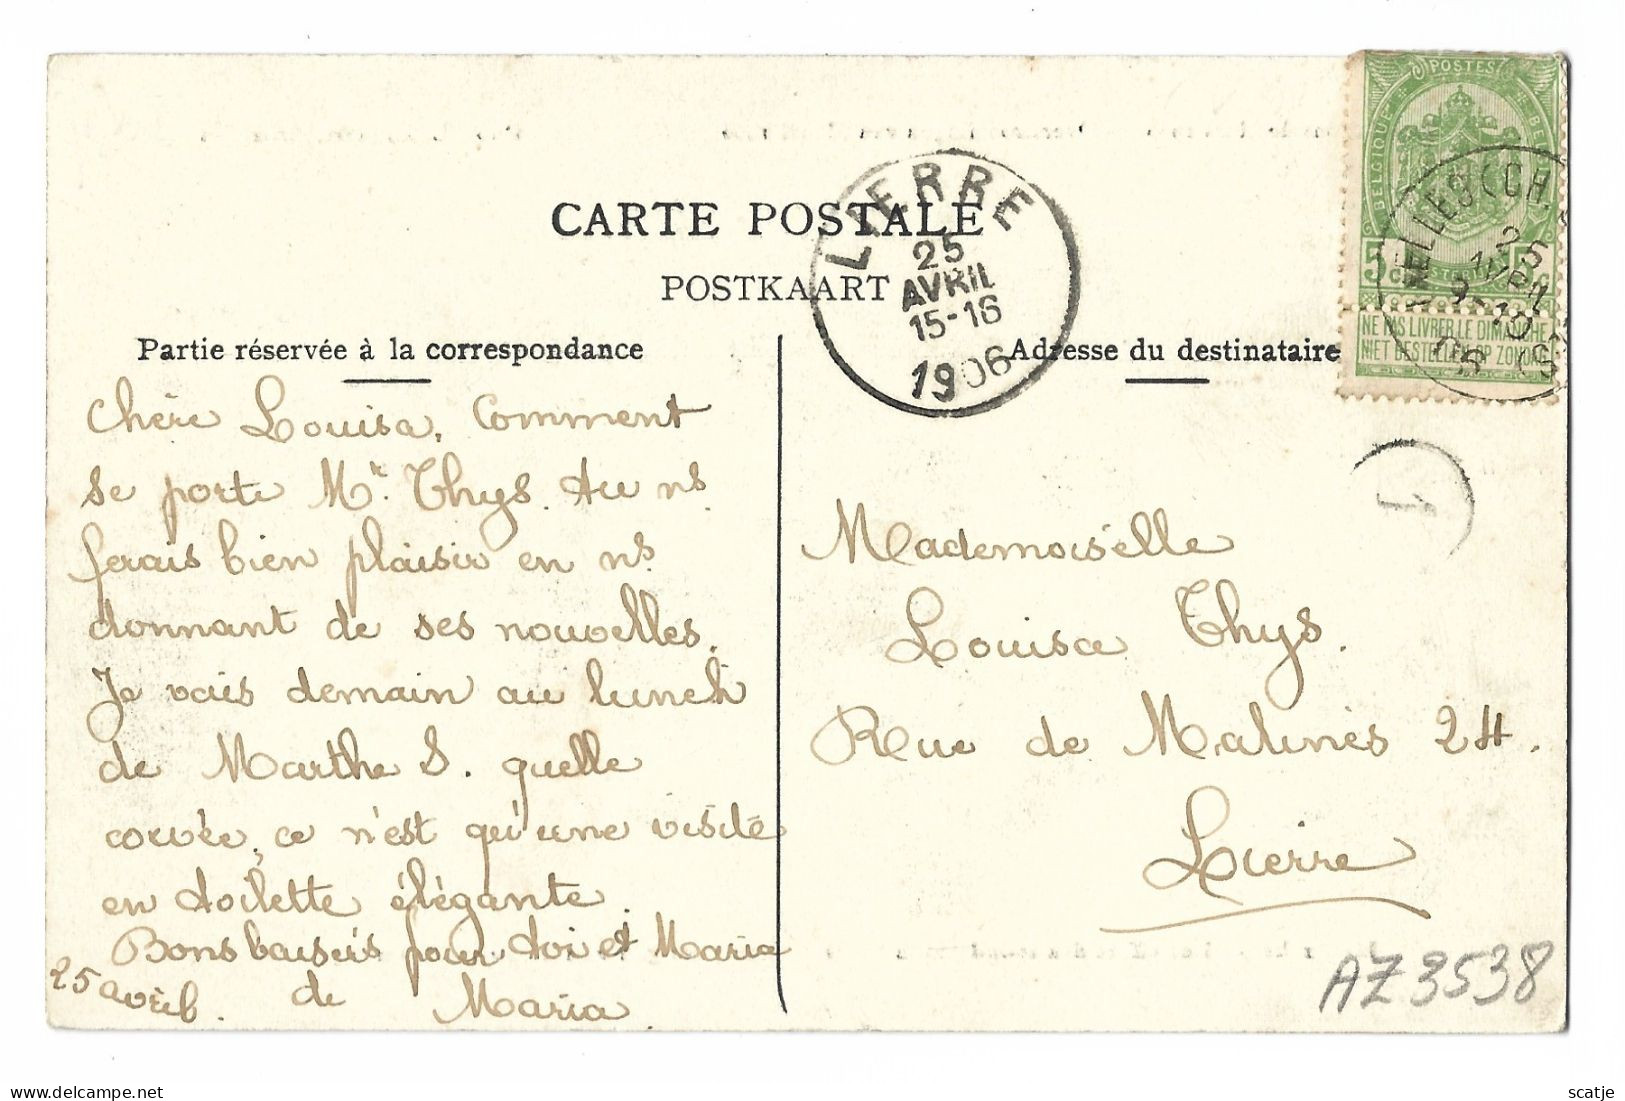 CARTE POSTALE
POSTKAART
Partie réservée à la correspondance
Adresse du destinataire
LIERRE
25
AVRIL
15-16
1906
POSTES
BELGIQUE
5
5
NE PAS LIVRER LE DIMANCHE
NIET BESTELLEN OP ZONDAG
ELLES (CH.
25
AVRIL
06
1
Chère Louisa, Comment
se porte Mr. Thys. tu ns
ferais bien plaisir en ns
donnant de ses nouvelles.
Je vais demain au lunch
de Marthe S. quelle
corvée, ce n'est qu'une visite
en toilette élégante.
Bons baisers pour toi et Maria
25 avril. de Maria
Mademoiselle
Louisa Thys.
Rue de Malines 24.
Lierre
AZ3538
scatje